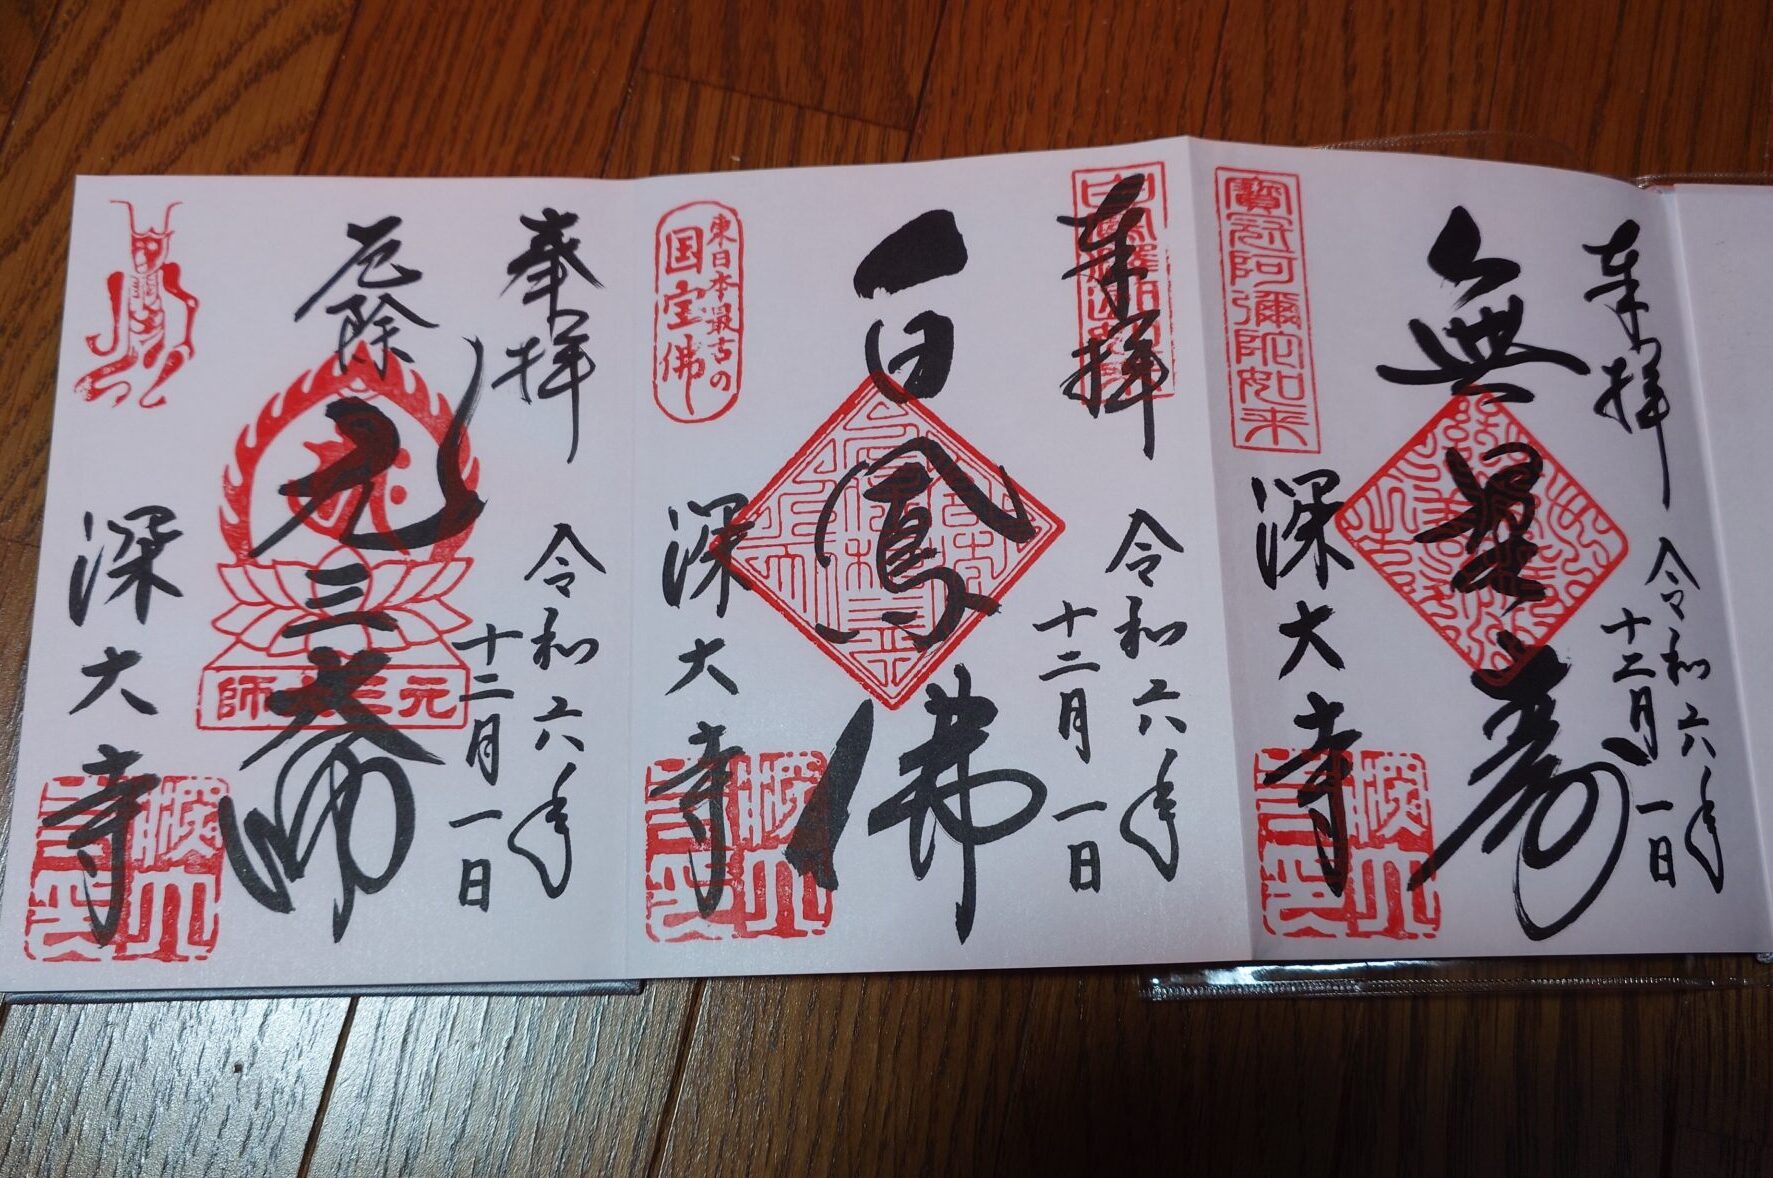 奉拝
令和六年
十二月一日
無量寿
寶冠阿彌陀如来
深大寺
奉拝
令和六年
十二月一日
白鳳佛
東日本最古の
国宝佛
深大寺
奉拝
令和六年
十二月一日
厄除
元三大師
元三大師
深大寺